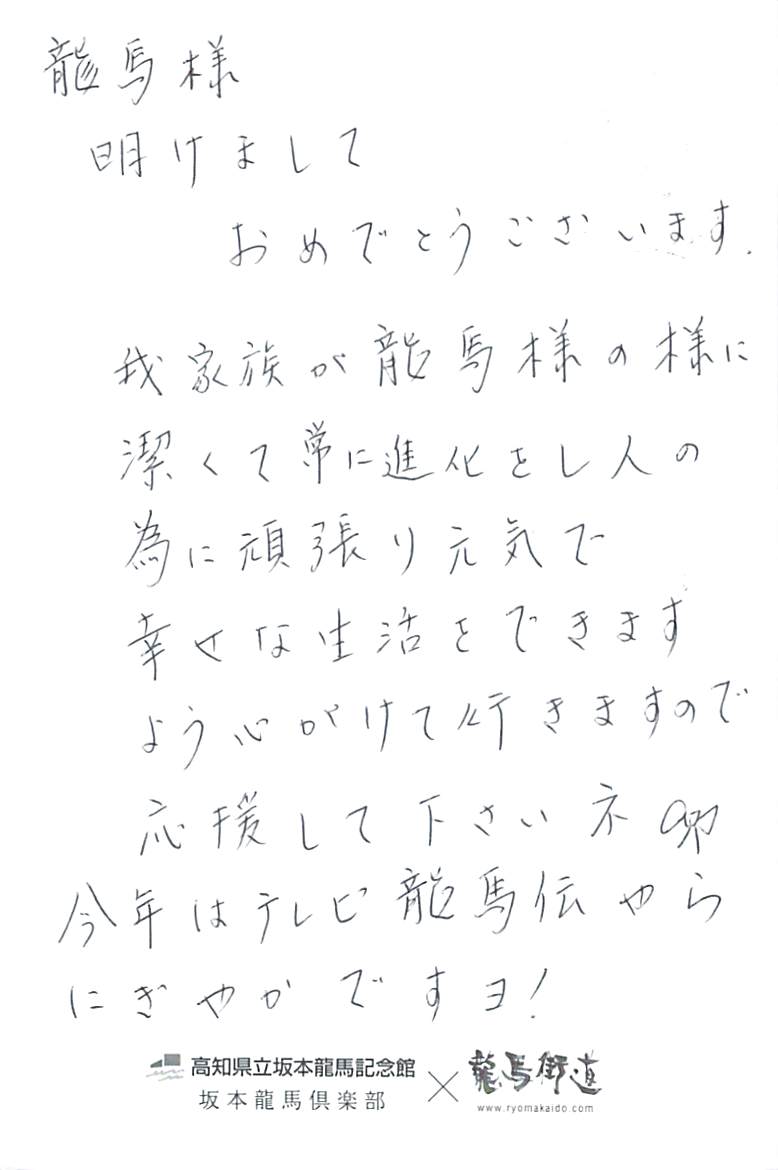 龍馬様
明けまして
おめでとうございます.
我家族が龍馬様の様に
潔くて常に進化をし人の
為に頑張り元気で
幸せな生活をできます
よう心がけて行きますので
応援して下さいネ
今年はテレビ龍馬伝やら
にぎやかですヨ!
高知県立坂本龍馬記念館
坂本龍馬倶楽部
×
龍馬街道
www.ryomakaido.com